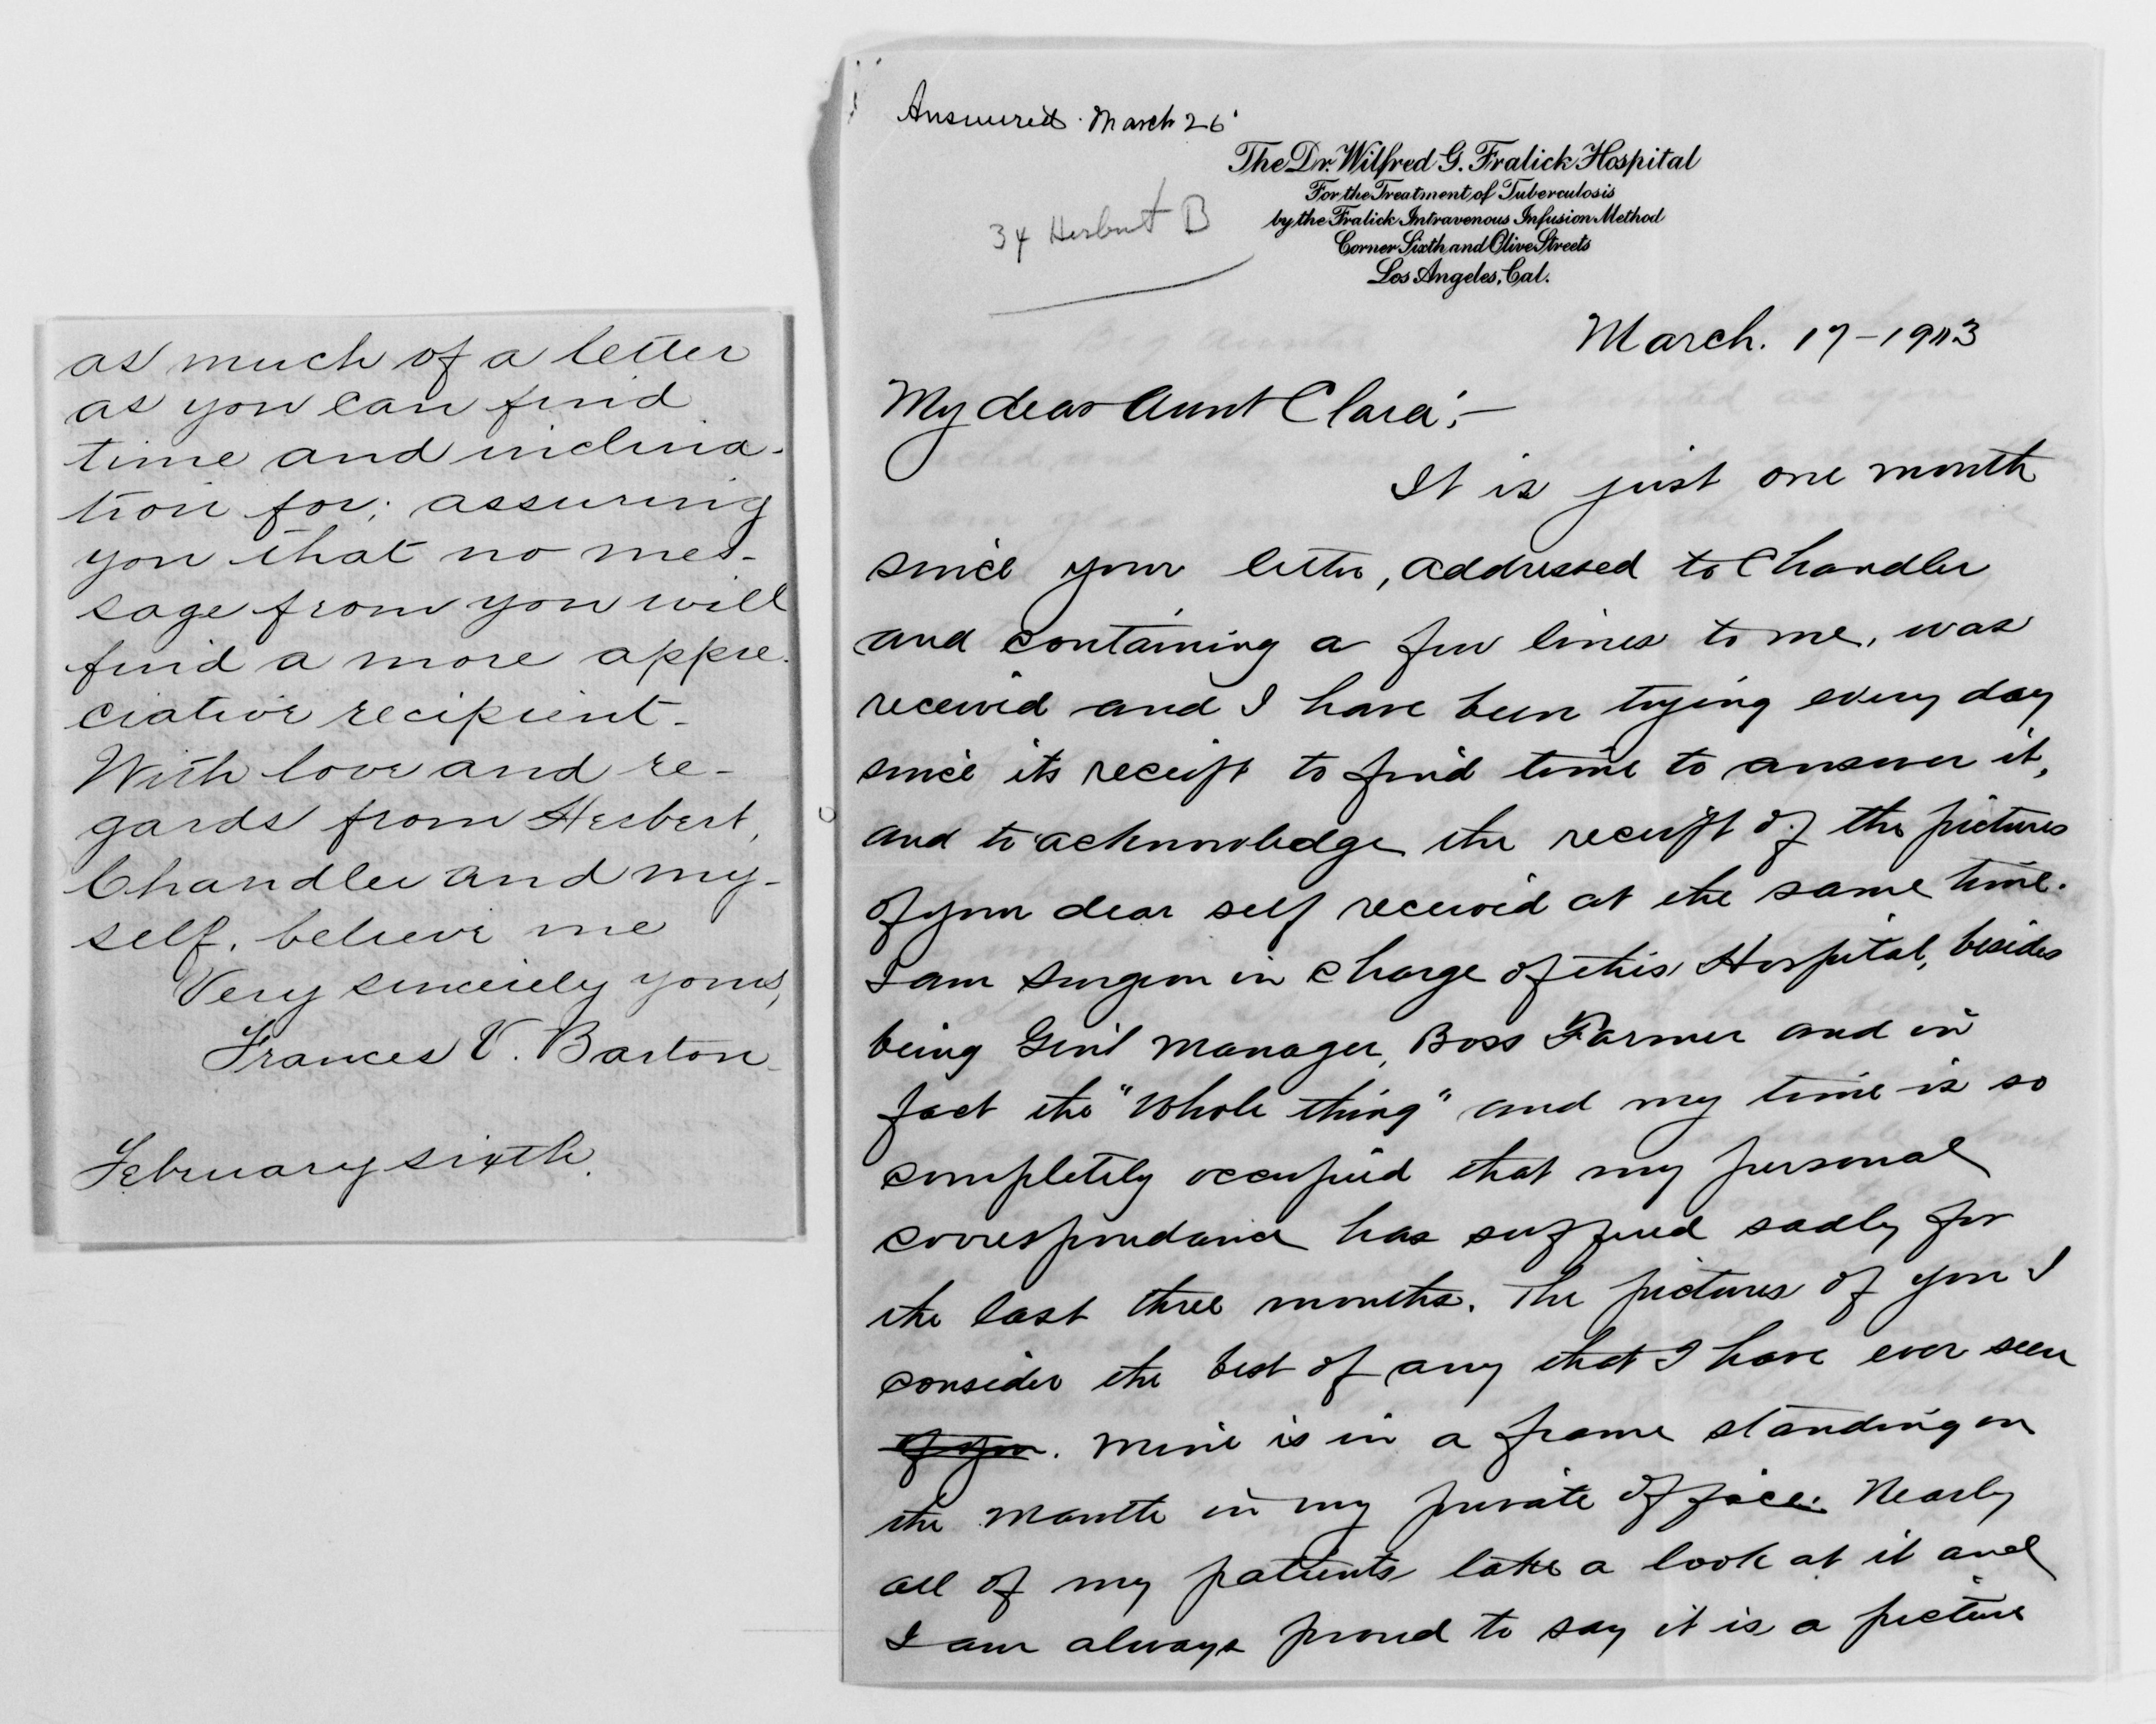 as much of a letter
as you can find
time and inclina-
tion for; assuring
you that no mes-
sage from you will
find a more appre-
ciative recipient-
With love and re-
gards from Herbert,
Chandler and my-
self, believe me
Very sincerely yours,
Frances V. Barton
February sixth.
Answered. March 26
The Dr. Wilfred G. Fralick Hospital
For the Treatment of Tuberculosis
by the Fralick Intravenous Infusion Method
Corner Sixth and Olive Streets
Los Angeles, Cal.
34 Herbert B
March. 17-1913
My dear Aunt Clara;-
It is just one month
since your letter, addressed to Chandler
and containing a few lines to me, was
received and I have been trying every day
since its receipt to find time to answer it,
and to acknowledge the receipt of the pictures
of your dear self received at the same time.
I am Surgeon in Charge of this Hospital, besides
being Genl Manager, Boss Farmer and in
fact the "Whole thing" and my time is so
completely occupied that my personal
correspondance has suffered sadly for
the last three months. The pictures of you I
consider the best of any that I have ever seen
of you. Mine is in a frame standing on
the mantle in my private office. Nearly
all of my patients take a look at it and
I am always proud to say it is a picture